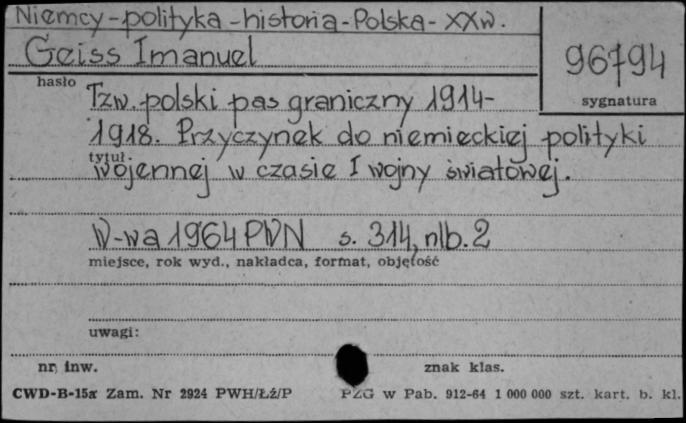 Niemcy-polityka-historia-Polska-XXw.
Geiss Imanuel
96794
hasło
sygnatura
Tzw. polski pas graniczny 1914-
1918. Przyczynek do niemieckiej polityki
tytuł
wojennej w czasie I wojny światowej.
W-wa 1964 PWN s. 314, nlb. 2
miejsce, rok wyd., nakładca, format, objętość
uwagi:
nr. inw. znak klas.
CWD-B-15a Zam. Nr 2924 PWH/Łź/P PZG w Pab. 912-64 1 000 000 szt. kart. b. kl.